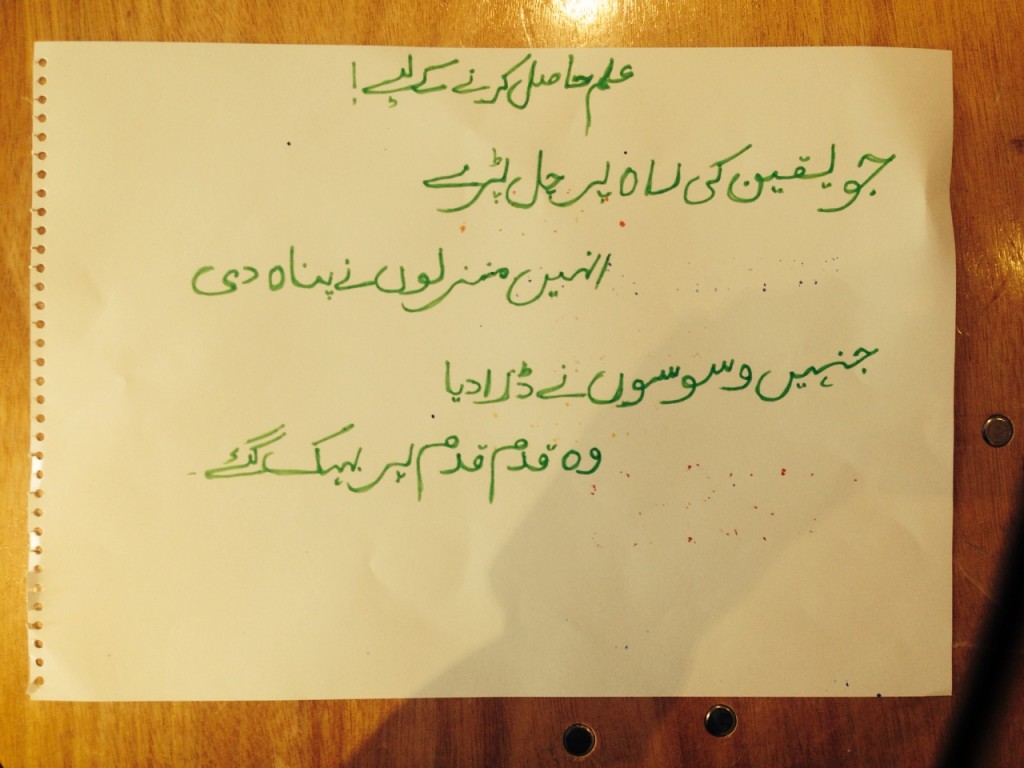 علم حاصل کرنے کے لیے !
جو یقین کی راہ پر چل پڑے
انہیں منزلوں نے پناہ دی
جنہیں وسوسوں نے ڈرا دیا
وہ قدم قدم پر بہک گئے۔